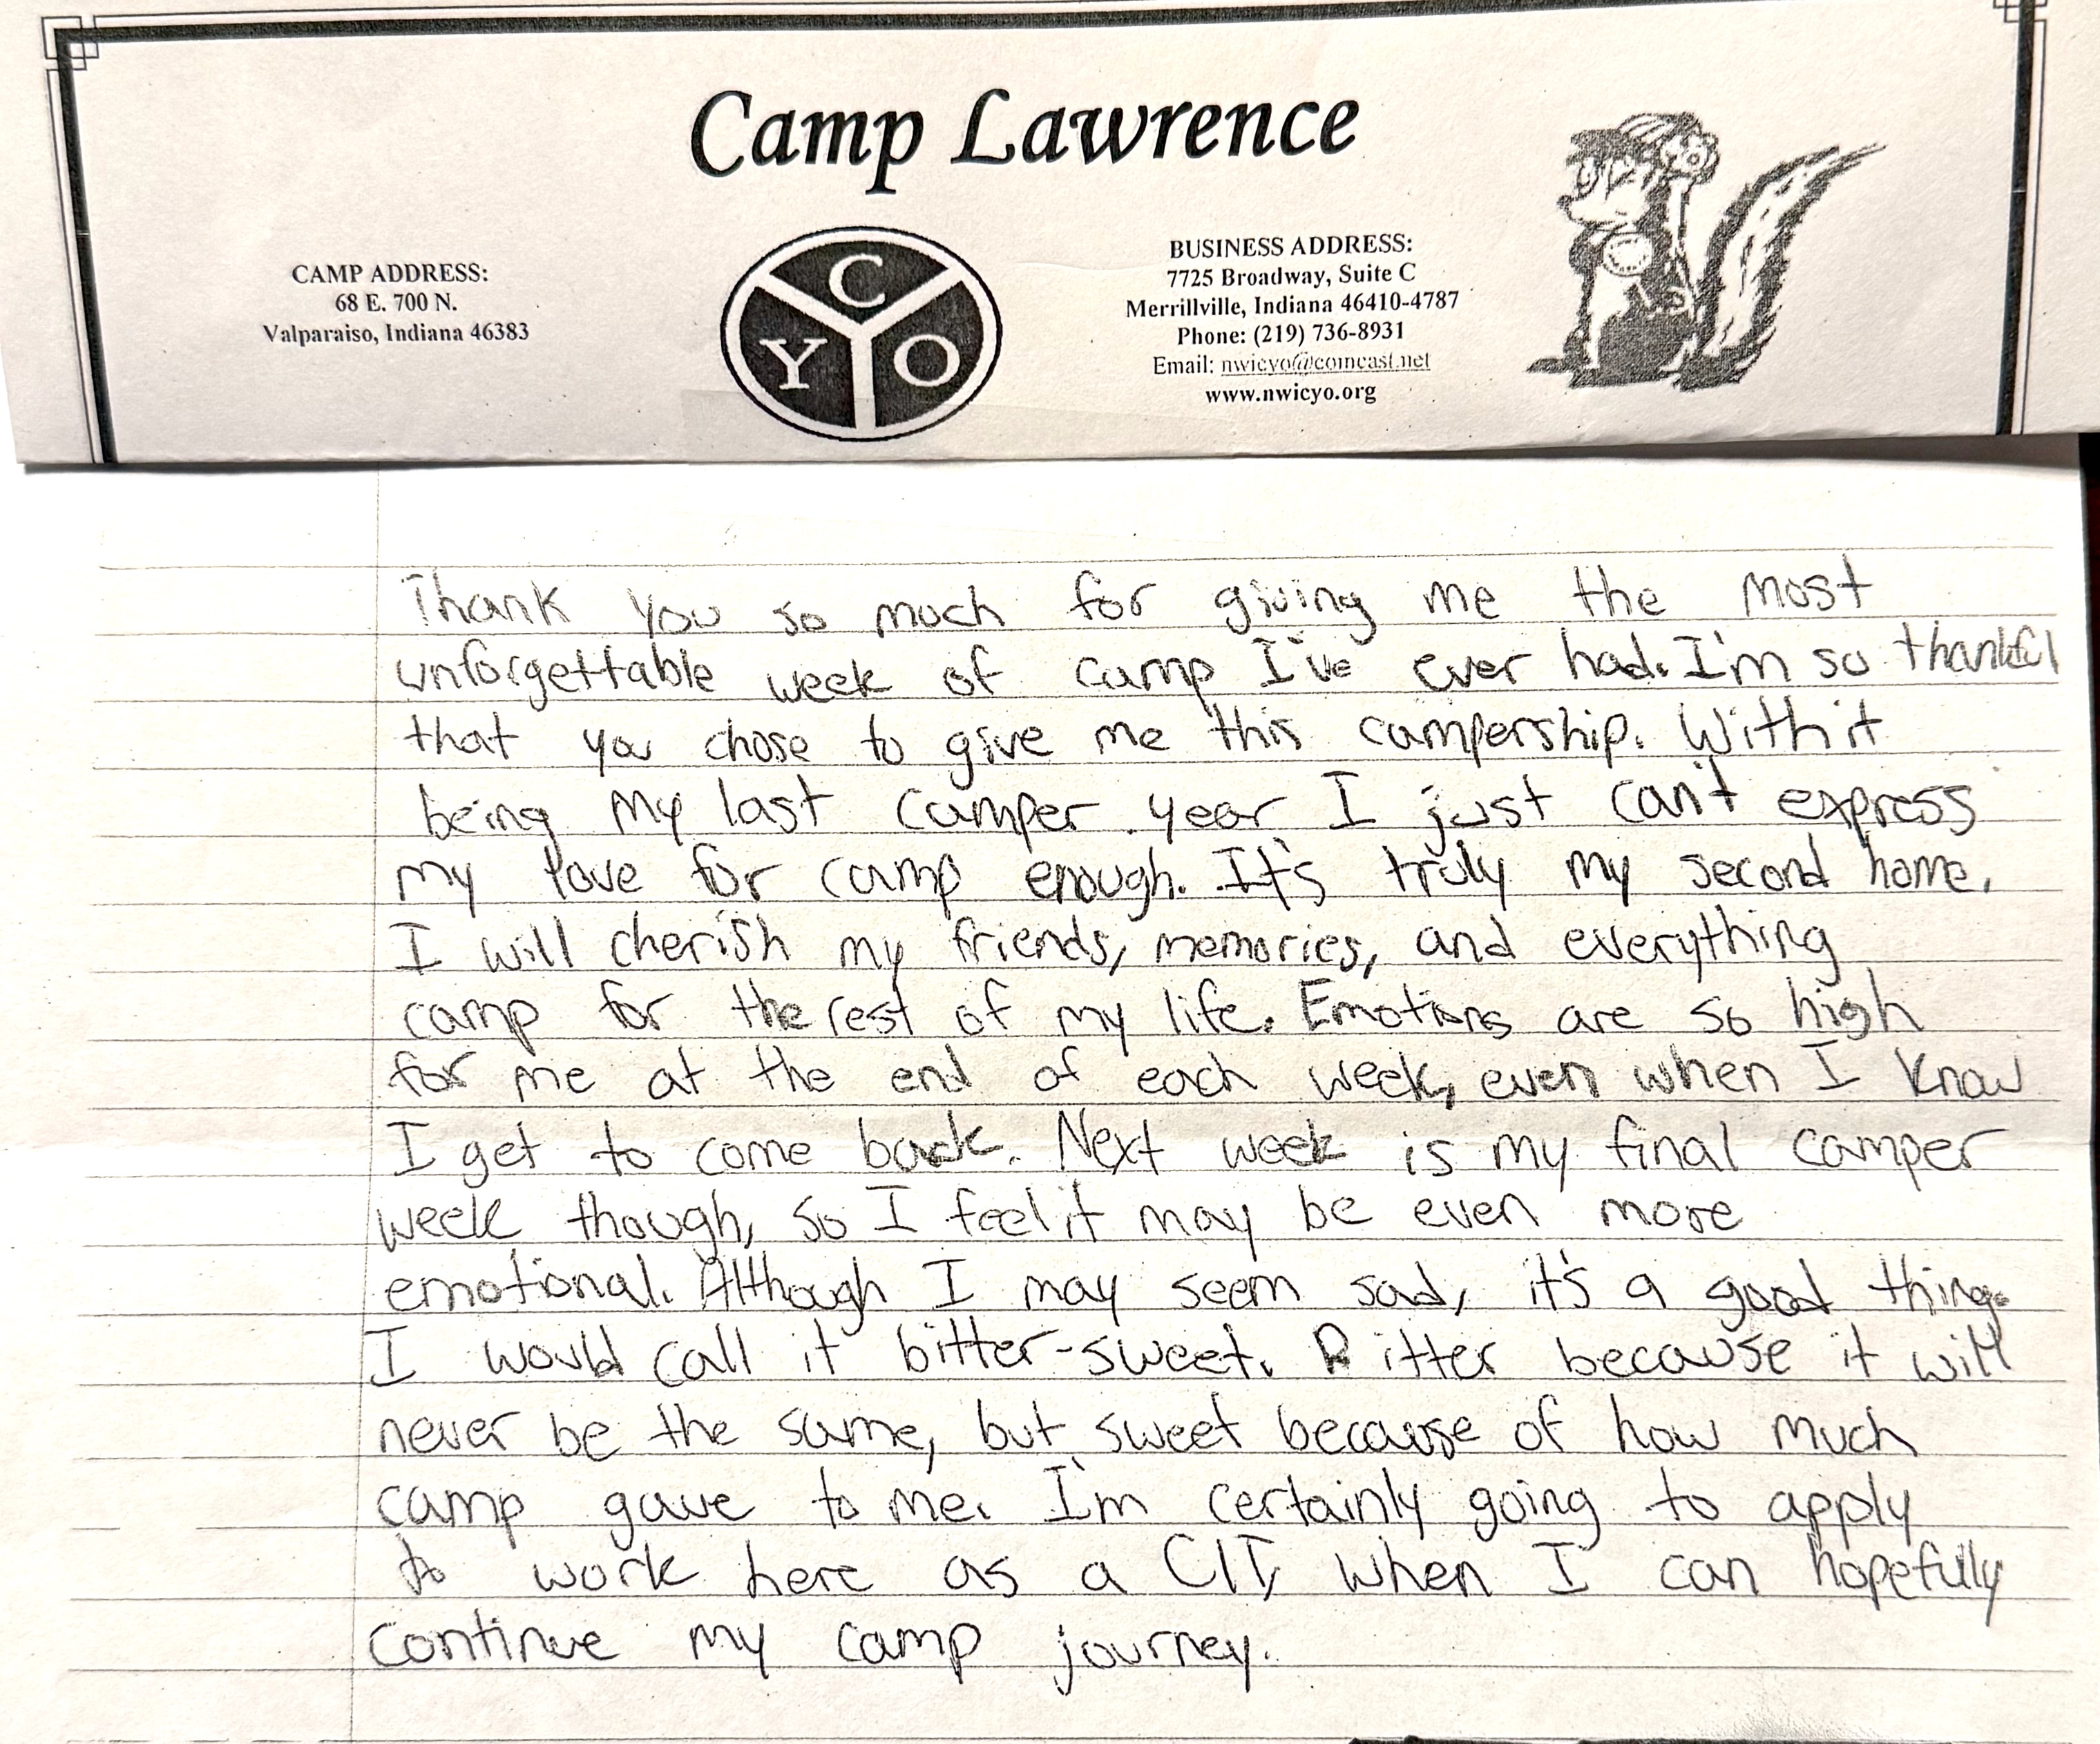 Camp Lawrence
CAMP ADDRESS:
68 E. 700 N.
Valparaiso, Indiana 46383
C
Y O
BUSINESS ADDRESS:
7725 Broadway, Suite C
Merrillville, Indiana 46410-4787
Phone: (219) 736-8931
Email: nwicyo@comcast.net
www.nwicyo.org
Thank you so much for giving me the most
unforgettable week of camp I've ever had. I'm so thankful
that you chose to give me this campership. With it
being my last camper year I just can't express
my love for camp enough. It's truly my second home.
I will cherish my friends, memories, and everything
camp for the rest of my life. Emotions are so high
for me at the end of each week, even when I know
I get to come back. Next week is my final camper
week though, so I feel it may be even more
emotional. Although I may seem sad, it's a good thing.
I would call it bitter-sweet. Bitter because it will
never be the same, but sweet because of how much
camp gave to me. I'm certainly going to apply
to work here as a CIT, when I can hopefully
continue my camp journey.